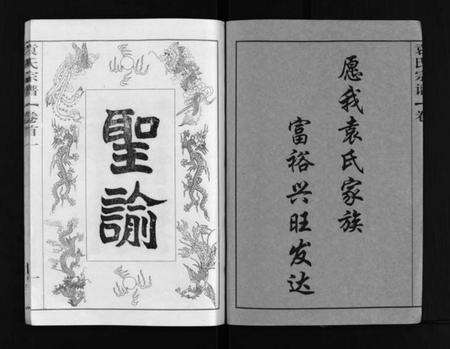 愿我袁氏家族
富裕兴旺发达
聖諭
袁氏宗譜
卷首
一
袁氏宗譜
卷